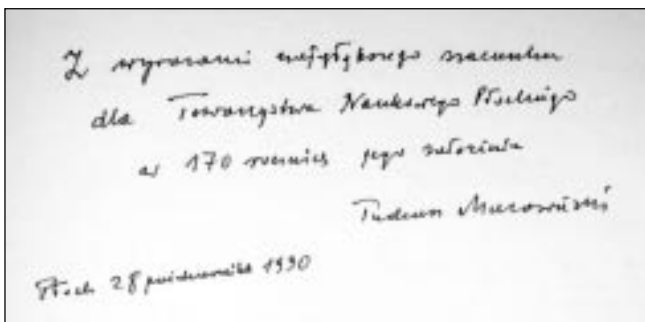 Z wyrazami najgłębszego szacunku
dla Towarzystwa Naukowego Płockiego
w 170 rocznicę jego założenia
Tadeusz Mazowiecki
Płock 28 października 1990